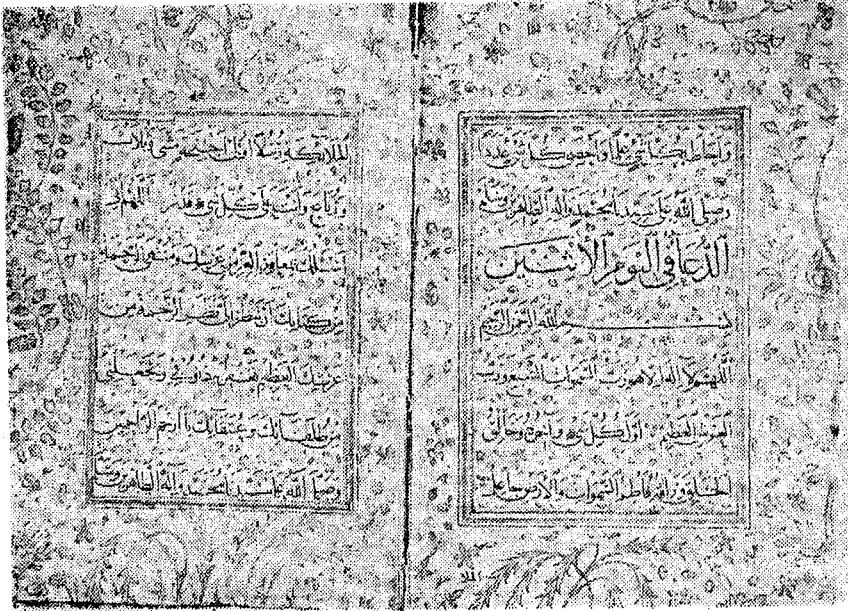 وَاَحَاطَ بِكُلِّ شَيْءٍ عِلْمًا وَاَحْصَى كُلَّ شَيْءٍ عَدَدًا
وَصَلَّى اللهُ عَلَى سَيِّدِنَا مُحَمَّدٍ وَآلِهِ الطَّاهِرِينَ وَسَلَّمَ
الدُّعَا فِي الْيَوْمِ الْاِثْنَيْنِ
بسم الله الرحمن الرحيم
اَللّهُمَّ لَا اِلهَ اِلَّا هُوَ رَبُّ السَّمَوَاتِ السَّبْعِ وَرَبُّ
الْعَرْشِ الْعَظِيمِ اَوَّلُ كُلِّ شَيْءٍ وَآخِرُهُ وَخَالِقُ
الْخَلْقِ فَاطِرُ السَّمَوَاتِ وَالْاَرْضِ جَاعِلُ
الملا
الْمَلَائِكَةِ رُسُلًا اُولِى اَجْنِحَةٍ مَثْنَى وَثُلَاثَ
وَرُبَاعَ وَاَنْتَ عَلَى كُلِّ شَيْءٍ قَدِيرٌ اَللّهُمَّ
اَسْئَلُكَ بِمَعَاقِدِ الْعِزِّ مِنْ عَرْشِكَ وَمُنْتَهَى الرَّحْمَةِ
مِنْ كِتَابِكَ اَنْ تَنْظُرَ اِلَىَّ نَظَرَ الرَّحْمَةِ مِنْ
عَرْشِكَ الْعَظِيمِ وَتَجْعَلَنِى
مِنْ طُلَقَائِكَ وَعُتَقَائِكَ يَا اَرْحَمَ الرَّاحِمِينَ
وَصَلَّى اللهُ عَلَى سَيِّدِنَا مُحَمَّدٍ وَآلِهِ الطَّاهِرِينَ وَسَلَّمَ